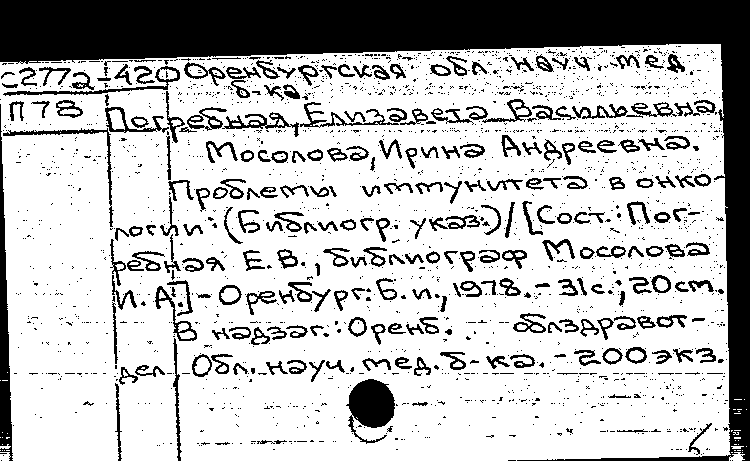 С277а-420 Оренбургская обл. науч. мед.
б-ка.
П78 Погребная, Елизавета Васильевна,
Мосолова, Ирина Андреевна.
Проблемы иммунитета в онко-
логии: (Библиогр. указ.) / [Сост.: Пог-
ребная Е. В., библиограф Мосолова
И. А.] - Оренбург: Б. и., 1978. - 31 с.; 20 см.
В надзаг.: Оренб. облздравот-
дел, Обл. науч. мед. б-ка. - 200 экз.